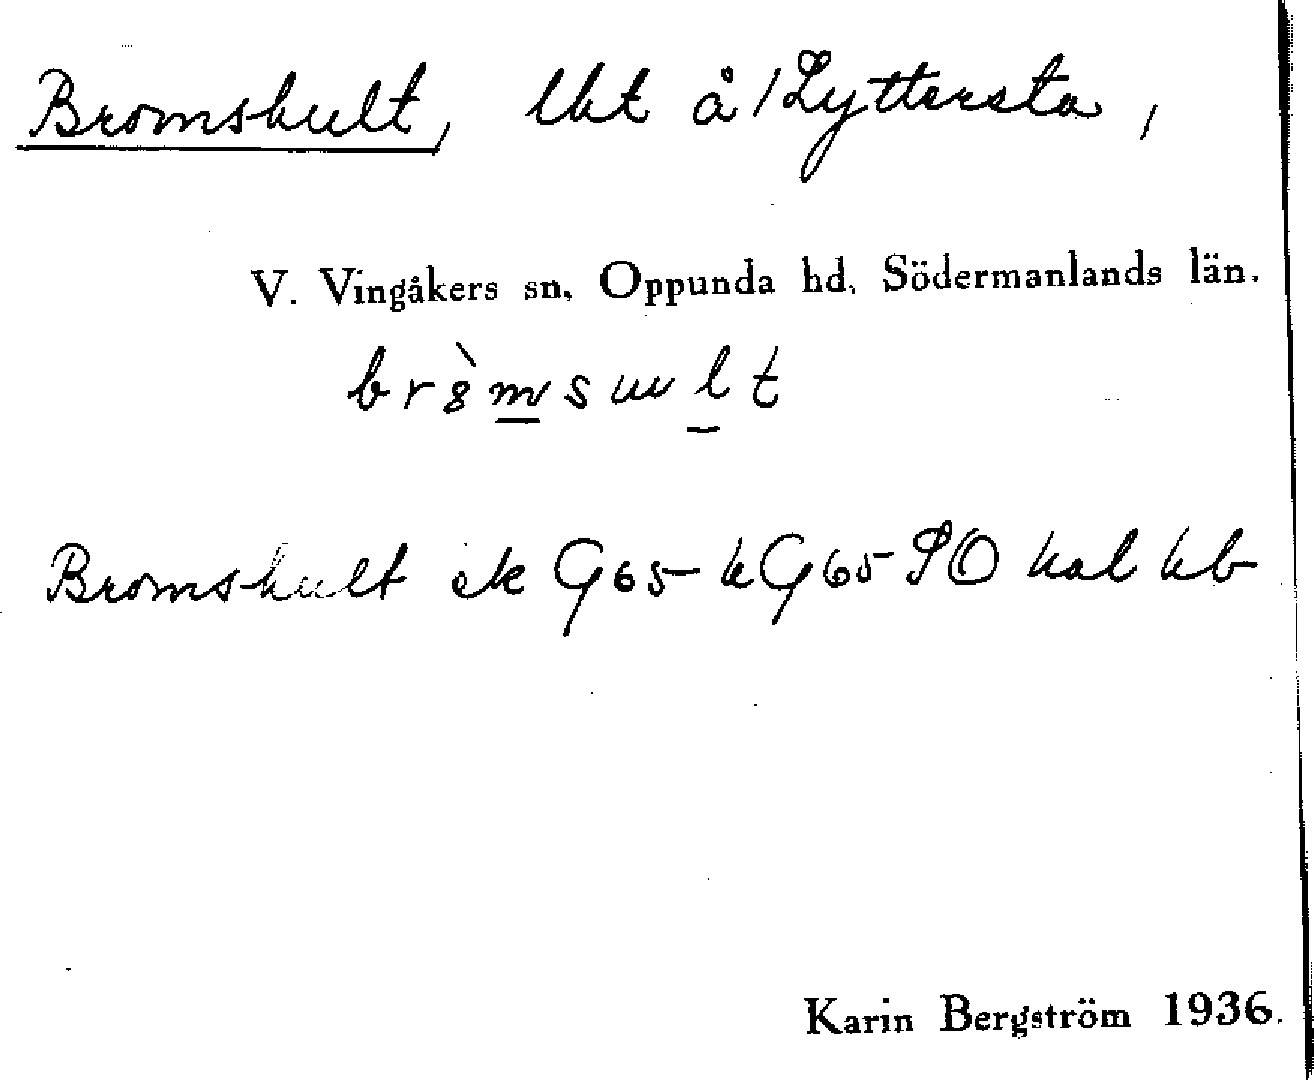 Bromshult, lht å /Lyttersta,
V. Vingåkers sn, Oppunda hd, Södermanlands län.
Bromshult ek G65 k G65 SO hal hb
Karin Bergström 1936.